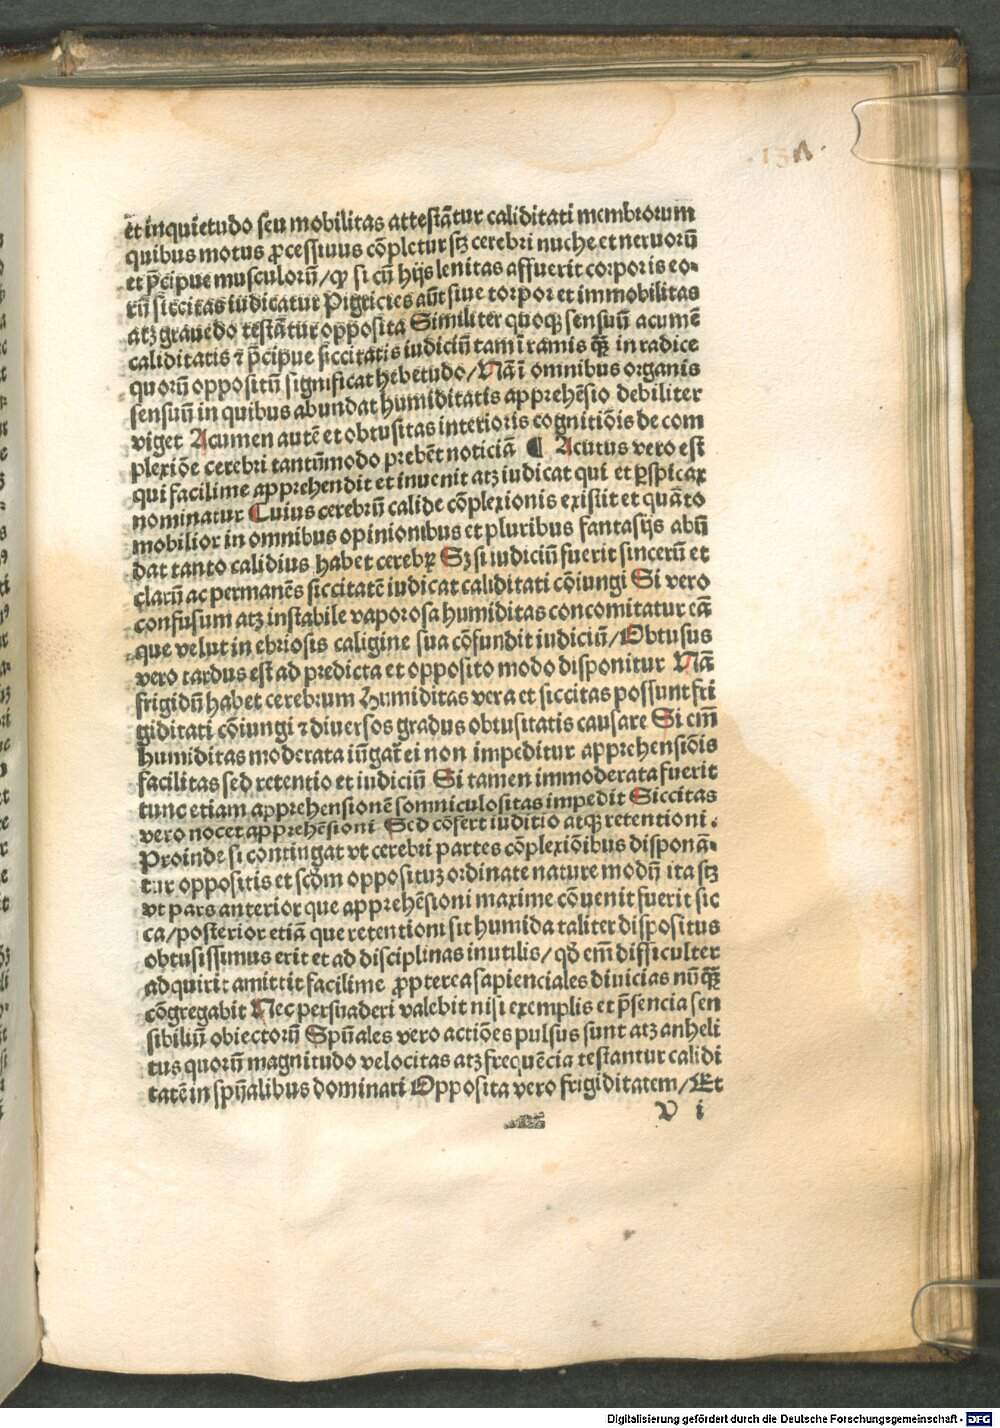 et inquietudo seu mobilitas attestãtur caliditati membrorum
quibus motus ꝓcessiuus cõpletur scꝫ cerebri nuche et neruorũ
et p̃cipue musculorũ/ꝙ si cũ hijs lenitas affuerit corporis eo⸗
rũ siccitas iudicatur Pigricies aũt siue torpor et immobilitas
atꝫ grauedo testãtur opposita Similiter quoqꝫ sensuũ acumẽ
caliditatis ⁊ p̃cipue siccitatis iudiciũ tam ĩ ramis qꝫ̃ in radice
quorũ oppositũ significat hebetudo/Nã ĩ omnibus organis
sensuũ in quibus abundat humiditatis apprehẽsio debiliter
viget Acumen autẽ et obtusitas interioris cognitiõis de com
plexiõe cerebri tantũmodo prebẽt noticiã ¶ Acutus vero est
qui facilime apprehendit et inuenit atꝫ iudicat qui et ꝑspicax
nominatur Cuius cerebrũ calide cõplexionis existit et quãto
mobilior in omnibus opinionibus et pluribus fantasijs abũ
dat tanto calidius habet cerebꝝ Sꝫ si iudiciũ fuerit sincerũ et
clarũ ac permanẽs siccitatẽ iudicat caliditati cõiungi Si vero
confusum atꝫ instabile vaporosa humiditas concomitatur eã
que velut in ebriosis caligine sua cõfundit iudiciũ/Obtusus
vero tardus est ad predicta et opposito modo disponitur Nã
frigidũ habet cerebrum Humiditas vera et siccitas possunt fri
giditati cõiungi ⁊ diuersos gradus obtusitatis causare Si em̃
humiditas moderata iũgat᷑ ei non impeditur apprehensiõis
facilitas sed retentio et iudiciũ Si tamen immoderata fuerit
tunc etiam apprehensionẽ somniculositas impedit Siccitas
vero nocet apprehẽsioni Sed cõfert iuditio atqꝫ retentioni.
Proinde si contingat vt cerebri partes cõplexiõibus disponã⸗
tur oppositis et scd̃m opposituꝫ ordinate nature modũ ita scꝫ
vt pars anterior que apprehẽsioni maxime cõuenit fuerit sic
ca/posterior etiã que retentioni sit humida taliter dispositus
obtusissimus erit et ad disciplinas inutilis/qd̃ em̃ difficulter
adquirit amittit facilime ꝓpterea sapienciales diuicias nũqꝫ̃
cõgregabit Nec persuaderi valebit nisi exemplis et p̃sencia sen
sibiliũ obiectorũ Spũales vero actiões pulsus sunt atꝫ anheli
tus quorũ magnitudo velocitas atꝫ frequẽcia testantur calidi
tatẽ in spũalibus dominari Opposita vero frigiditatem/Et
v i
Digitalisierung gefördert durch die Deutsche Forschungsgemeinschaft - DFG